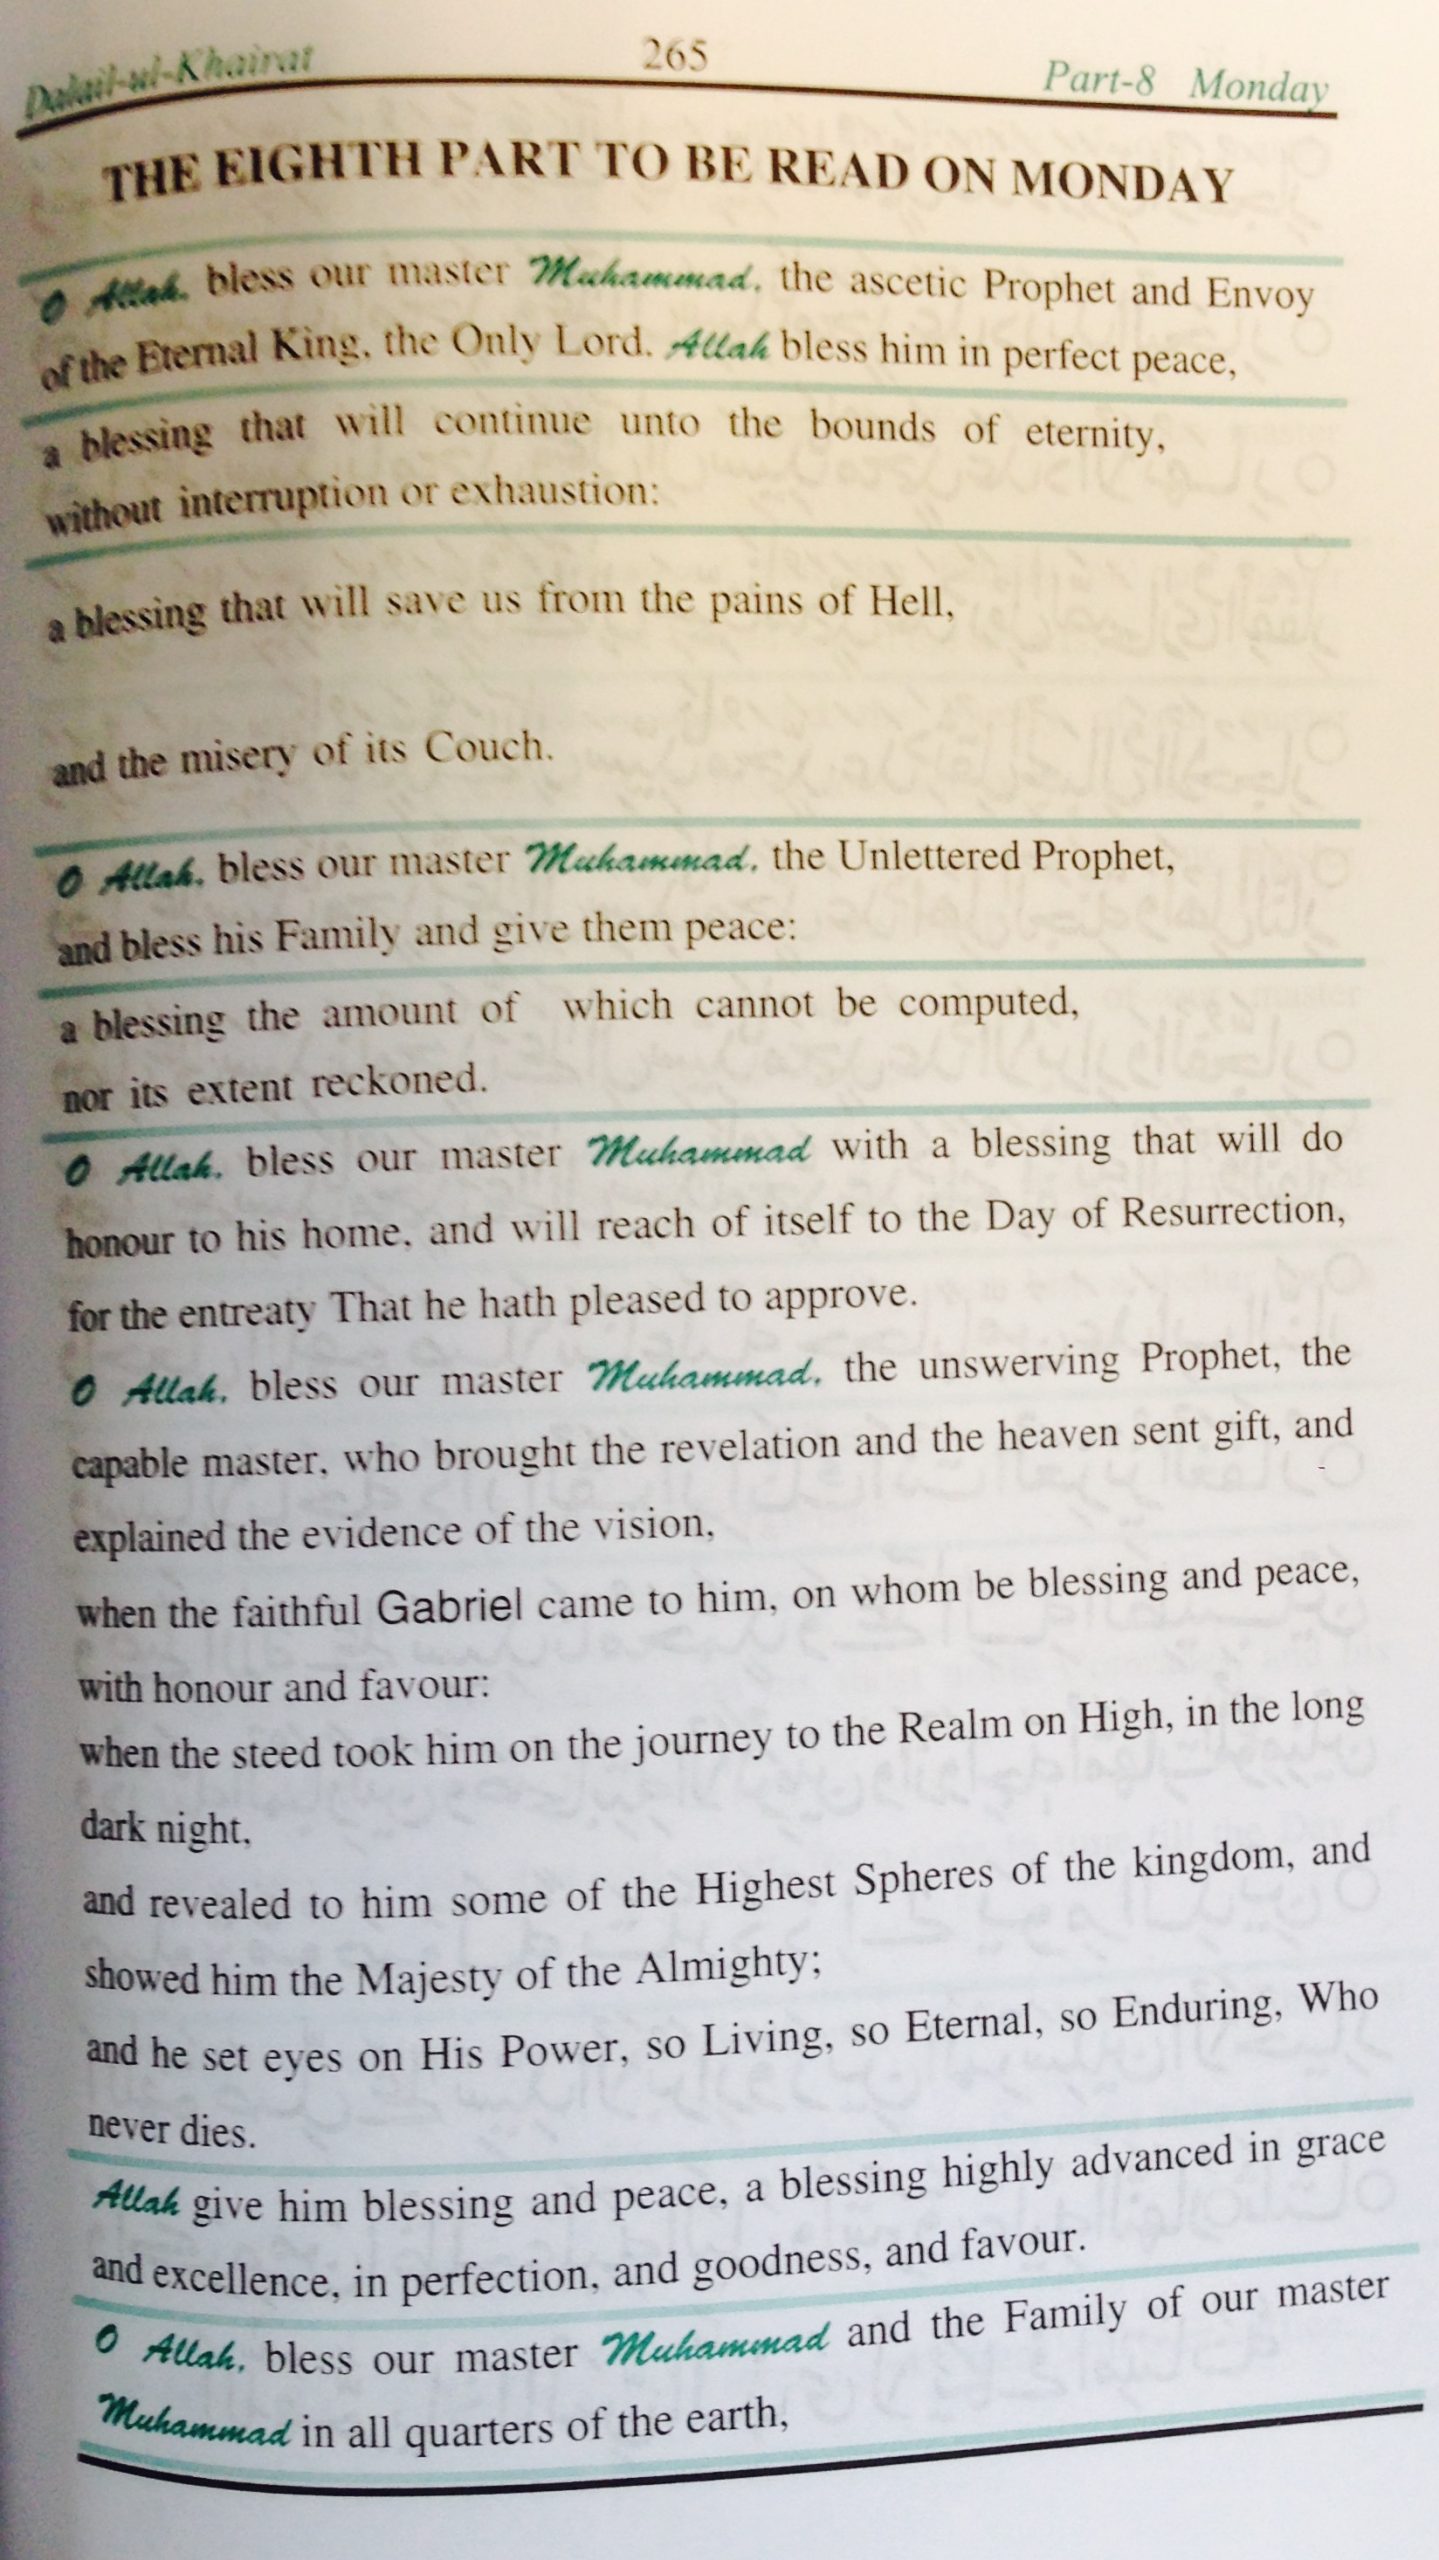 Dalail-ul-Khairat 265 Part-8 Monday
THE EIGHTH PART TO BE READ ON MONDAY
O Allah, bless our master Muhammad, the ascetic Prophet and Envoy
of the Eternal King, the Only Lord. Allah bless him in perfect peace,
a blessing that will continue unto the bounds of eternity,
without interruption or exhaustion:
a blessing that will save us from the pains of Hell,
and the misery of its Couch.
O Allah, bless our master Muhammad, the Unlettered Prophet,
and bless his Family and give them peace:
a blessing the amount of which cannot be computed,
nor its extent reckoned.
O Allah, bless our master Muhammad with a blessing that will do
honour to his home, and will reach of itself to the Day of Resurrection,
for the entreaty That he hath pleased to approve.
O Allah, bless our master Muhammad, the unswerving Prophet, the
capable master, who brought the revelation and the heaven sent gift, and
explained the evidence of the vision,
when the faithful Gabriel came to him, on whom be blessing and peace,
with honour and favour:
when the steed took him on the journey to the Realm on High, in the long
dark night,
and revealed to him some of the Highest Spheres of the kingdom, and
showed him the Majesty of the Almighty;
and he set eyes on His Power, so Living, so Eternal, so Enduring, Who
never dies.
Allah give him blessing and peace, a blessing highly advanced in grace
and excellence, in perfection, and goodness, and favour.
O Allah, bless our master Muhammad and the Family of our master
Muhammad in all quarters of the earth,